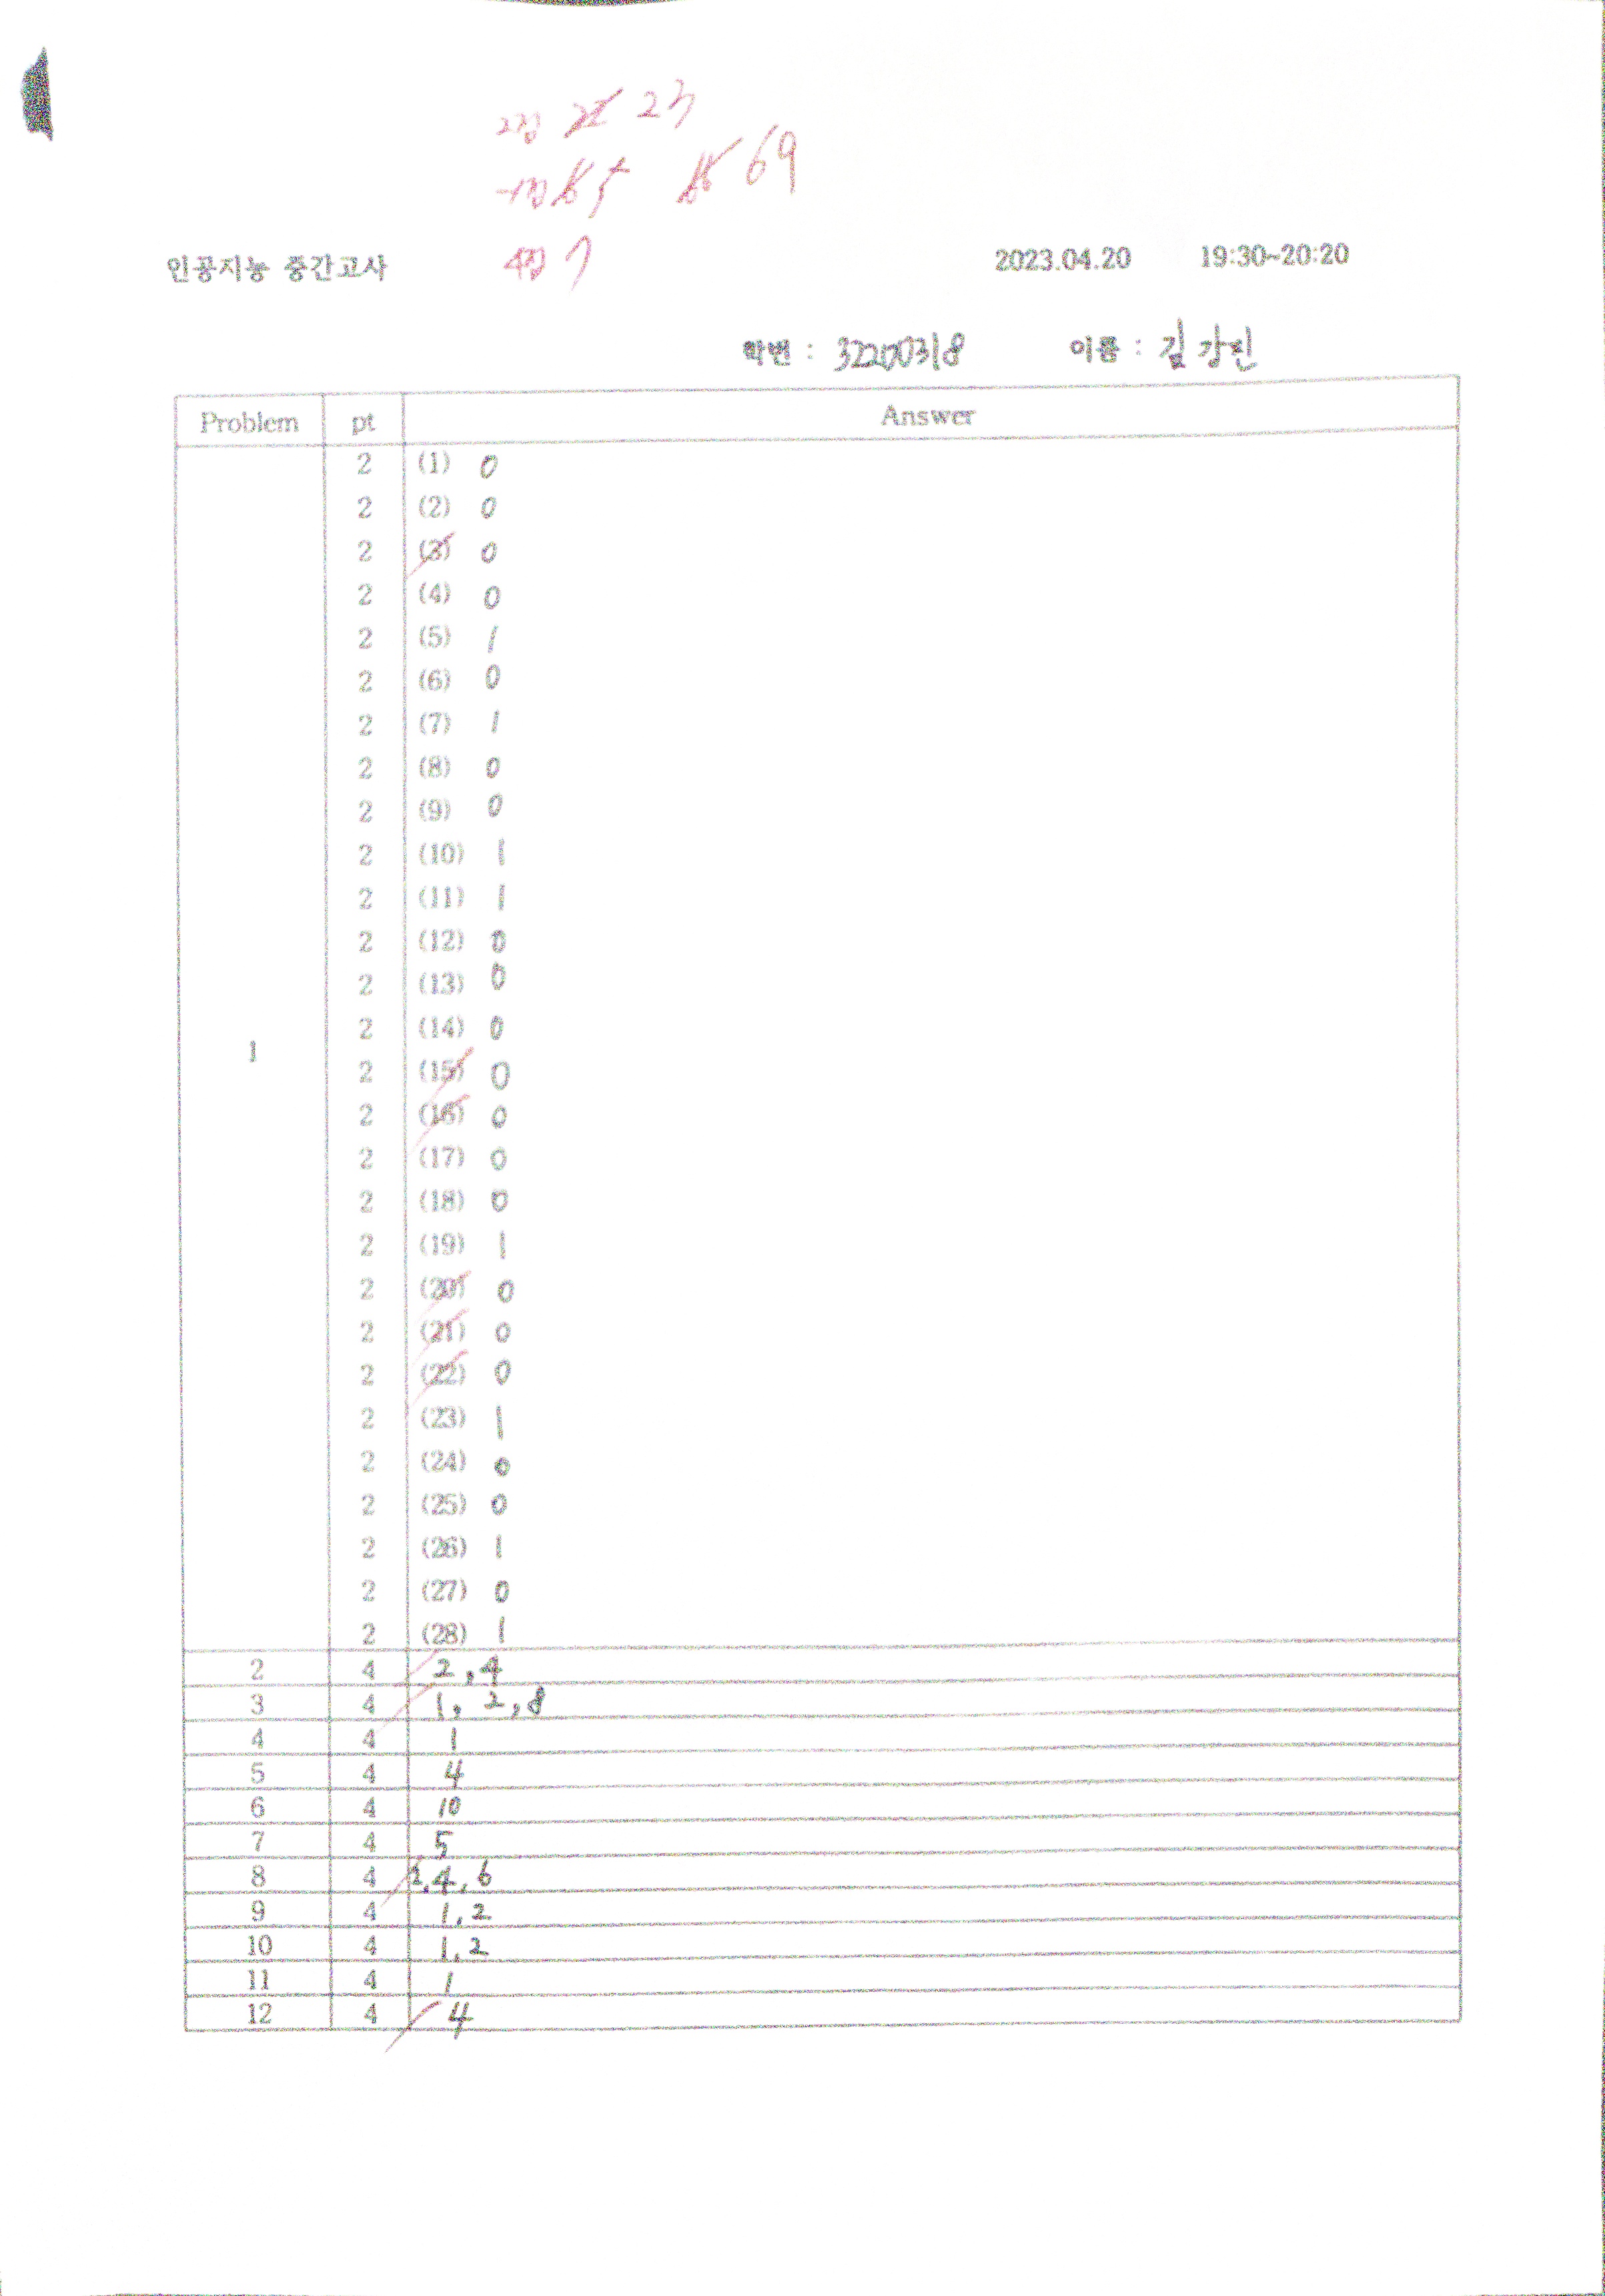 2점 23
-1점 5
69
4점 7
인공지능 중간고사 2023.04.20 19:30~20:20
학번 : 32200318 이름 : 김강민
Problem pt Answer
1
2 (1) 0
2 (2) 0
2 (3) 0
2 (4) 0
2 (5) 1
2 (6) 0
2 (7) 1
2 (8) 0
2 (9) 0
2 (10) 1
2 (11) 1
2 (12) 0
2 (13) 0
2 (14) 0
2 (15) 0
2 (16) 0
2 (17) 0
2 (18) 0
2 (19) 1
2 (20) 0
2 (21) 0
2 (22) 0
2 (23) 1
2 (24) 0
2 (25) 0
2 (26) 1
2 (27) 0
2 (28) 1
2 4 2,4
3 4 1, 2,8
4 4 1
5 4 4
6 4 10
7 4 5
8 4 2,4,6
9 4 1,2
10 4 1,2
11 4 1
12 4 4